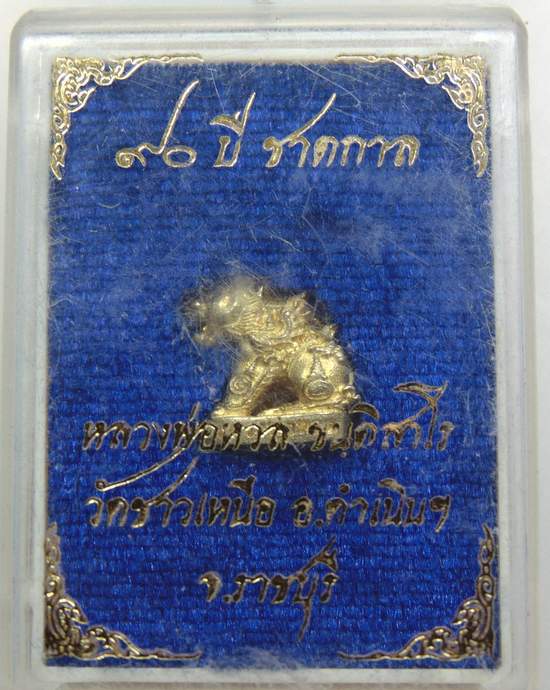 ๙๐ ปี ชาตกาล
หลวงพ่อหวล ขนฺติสาโร
วัดชาวเหนือ อ.ดำเนินฯ
จ.ราชบุรี